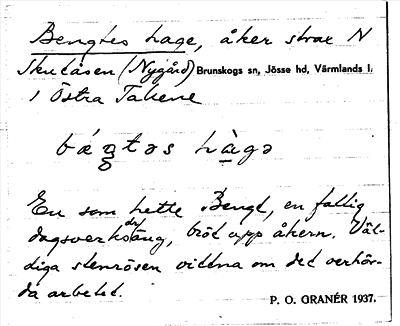 Bengtes hage, åker strax N
Skutåsen (Nygård) Brunskogs sn, Jösse hd, Värmlands l.
i Östra Takene
bá ŋ̥təs hàgə
En som hette Bengt, en fattig
dagsverksdräng, bröt upp åkern. Väl-
diga stenrösen vittna om det verkör-
da arbetet.
P. O. GRANÉR 1937.